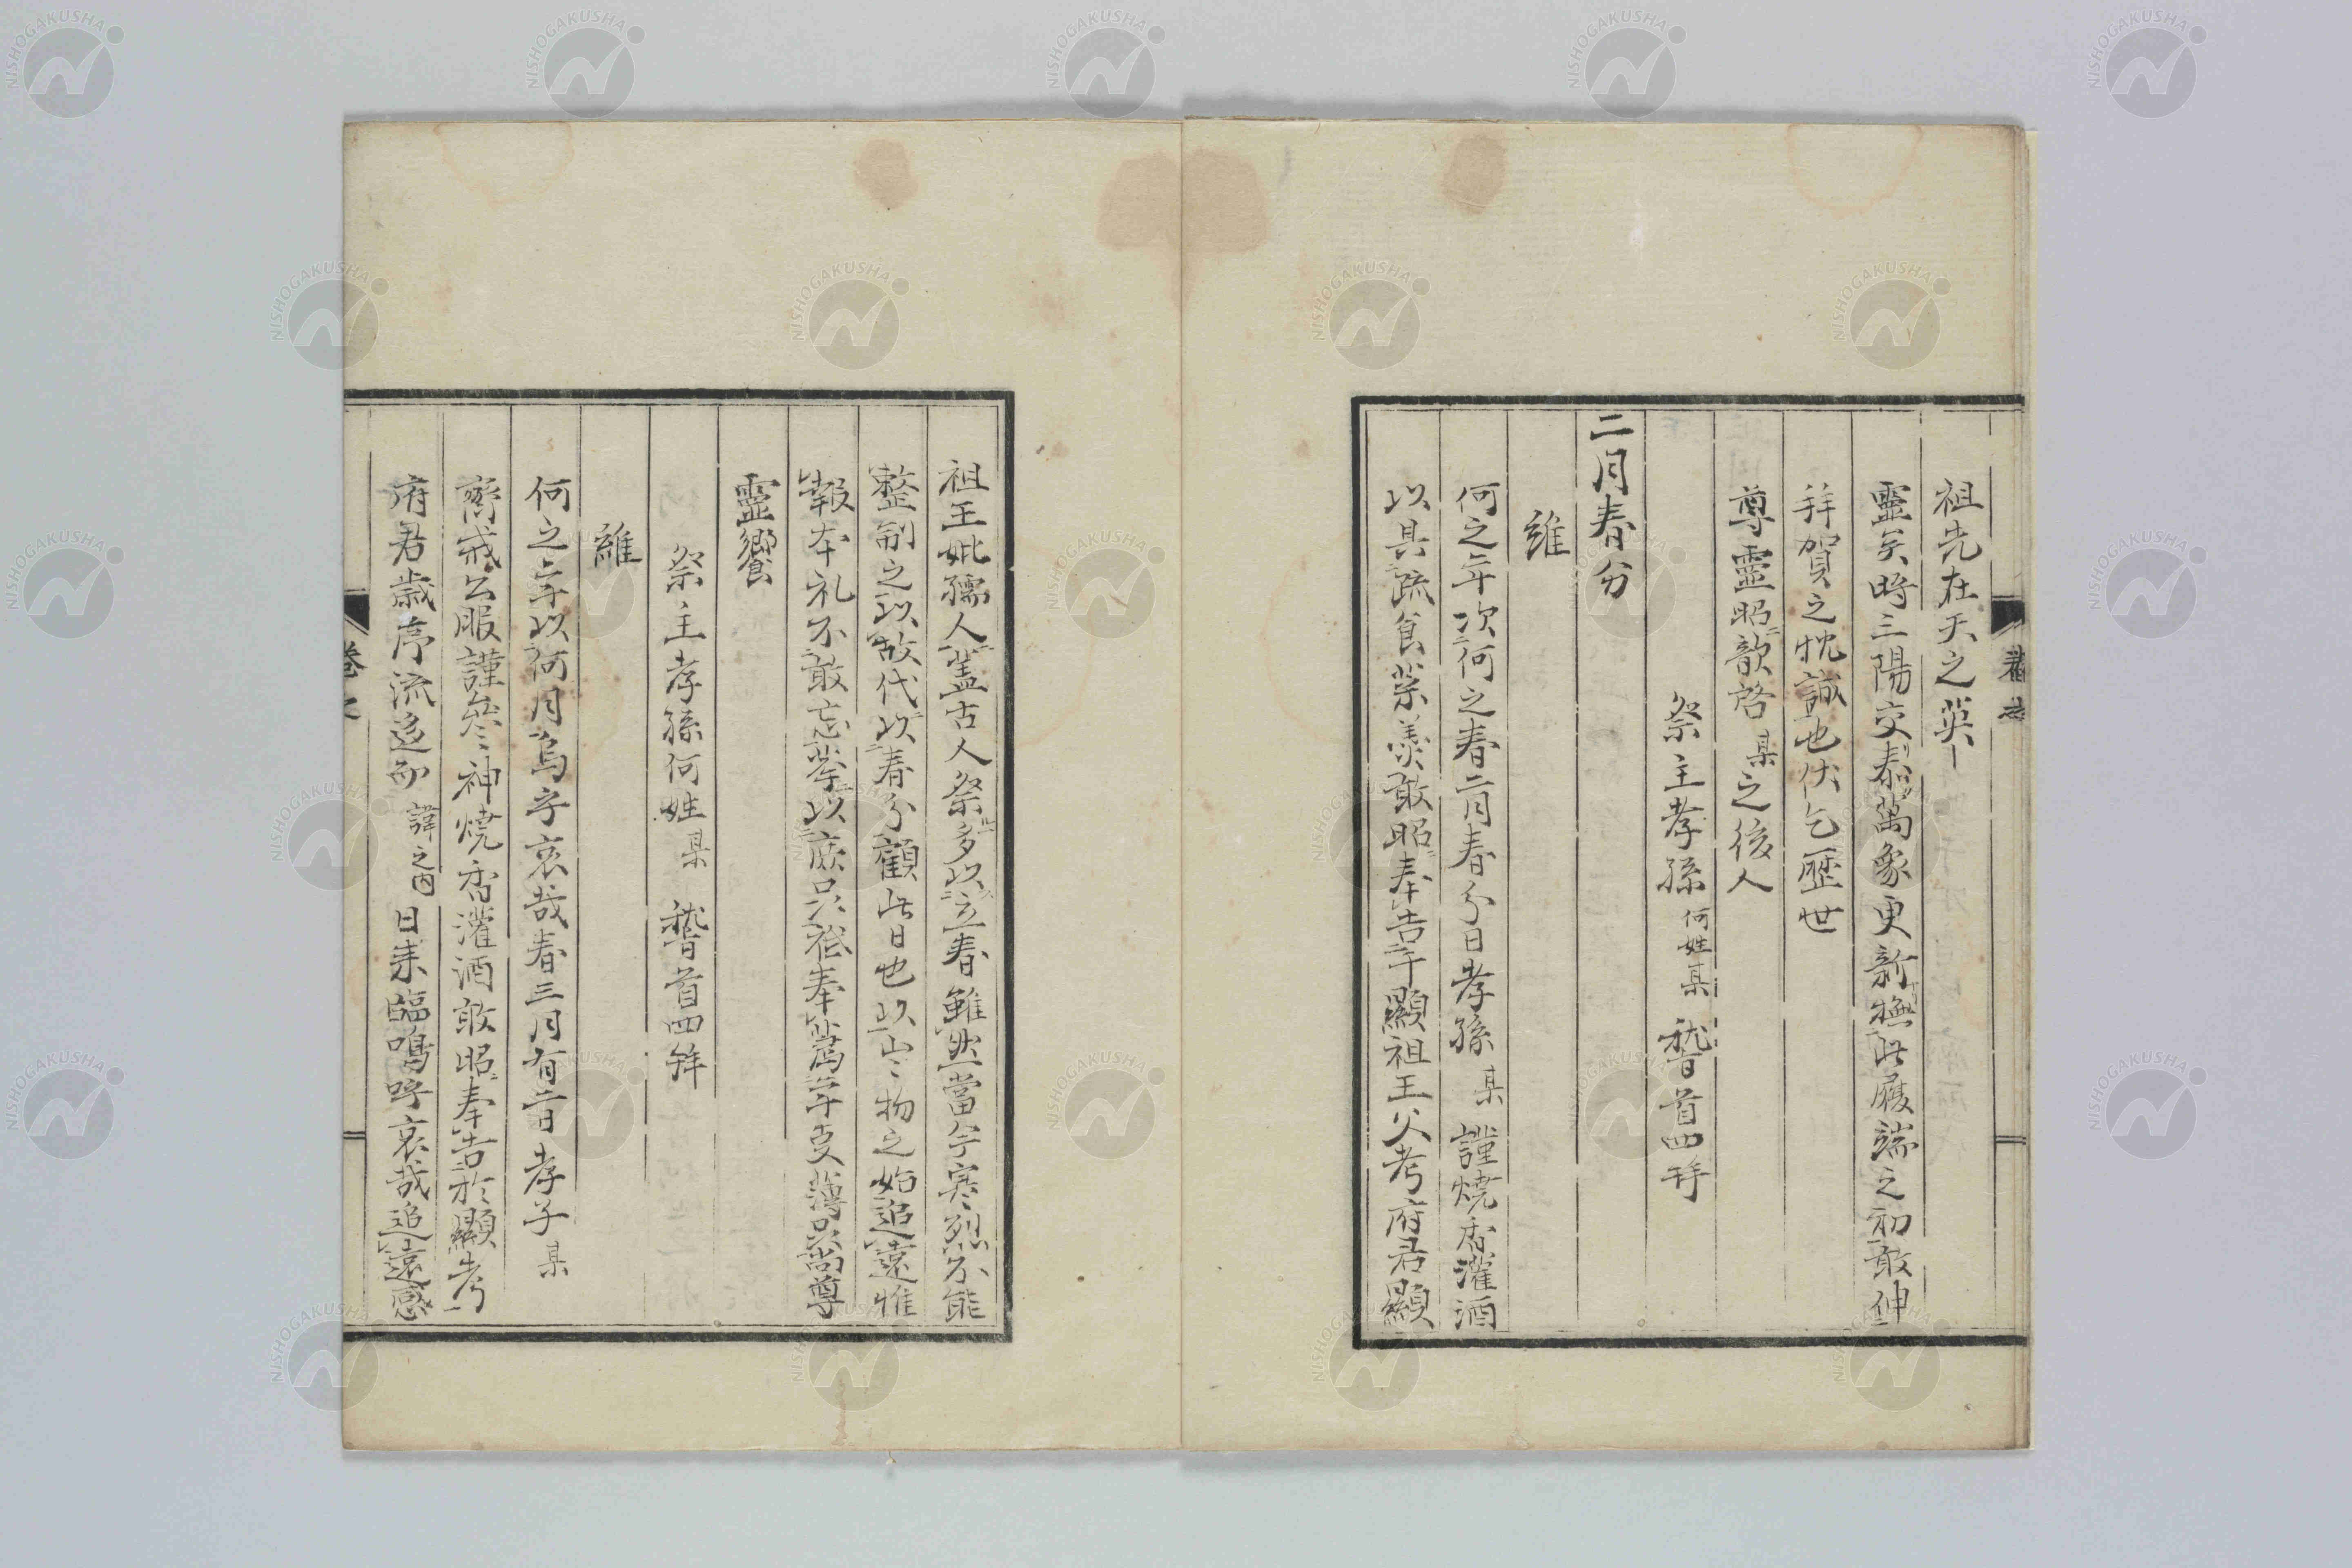 祖先在天之英
靈矣時三陽交泰萬象更新撫此履端之初敢伸
拜賀之忱誠也伏乞歷世
尊靈昭歆啓某之後人
祭主孝孫何姓某 稽首四拜
二月春分
維
何之年次何之春二月春分日孝孫某 謹燒香灌酒
以具疏食菜羹敢昭奉告于顯祖王父考府君顯
祖王妣孺人蓋古人祭多以立春雖然當今寒烈不能
整制之以故代以春分顧此日也以品物之始追遠惟
報本礼不敢忘挙以庶只奉薦年支薄只尚尊
靈饗
祭主孝孫何姓某 稽首四拜
維
何之年以何月烏乎哀哉春三月有二日孝子某
齊戒公服謹參神燒香灌酒敢昭奉告於顯考
府君歲序流逐即諱之日來臨嗚呼哀哉追遠感
NISHOGAKUSHA